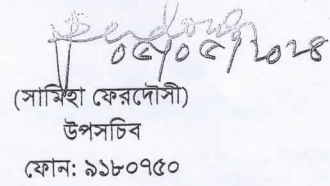 ০৫/০৫/২০২৪
(সামিহা ফেরদৌসী)
উপসচিব
ফোন: ৯১৮০৭৫০